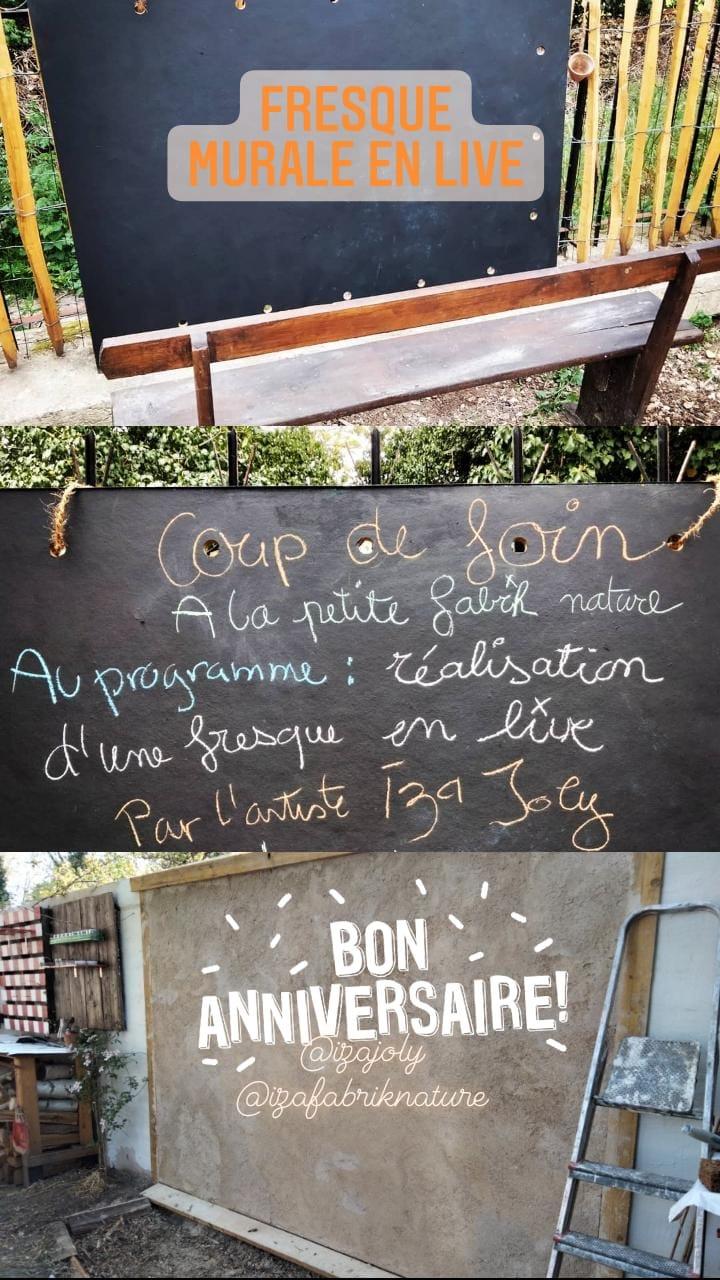 FRESQUE
MURALE EN LIVE
Coup de soin
A la petite fabrik nature
Au programme : réalisation
d'une fresque en live
Par l'artiste Iza Joly
BON
ANNIVERSAIRE!
@izajoly
@izafabriknature